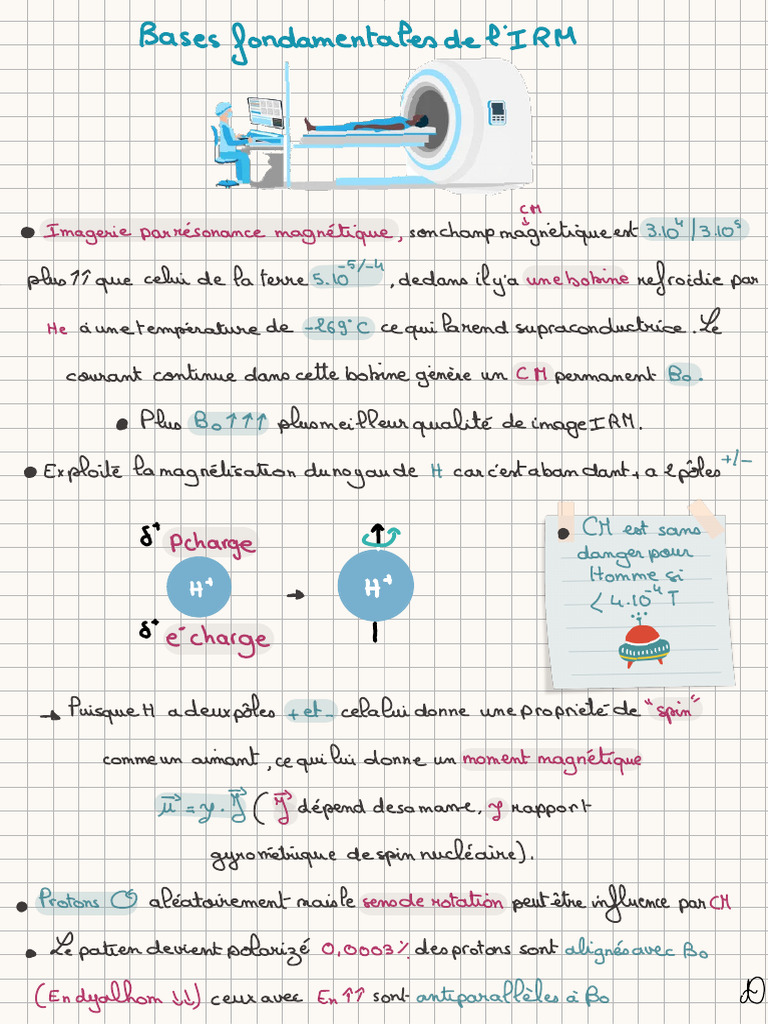 Bases fondamentales de l'IRM
CM
↓
● Imagerie par résonance magnétique, son champ magnétique est 3.10⁴/3.10⁵
plus ↑↑ que celui de la terre 5.10⁻⁵/⁻⁴, dedans il y'a une bobine refroidie par
He à une température de -269°C ce qui la rend supraconductrice. Le
courant continue dans cette bobine génère un CM permanent B₀.
● Plus B₀ ↑↑↑ plus meilleur qualité de image IRM.
● Exploite la magnétisation du noyau de H car c'est abandant, + a 2 pôles +/-
δ⁺ P charge
H⁺
δ⁺ e⁻ charge
→
H⁺
● CM est sans
danger pour
Homme si
< 4.10⁻⁴ T
→ Puisque H a deux pôles + et - cela lui donne une propriété de "spin"
comme un aimant, ce qui lui donne un moment magnétique
μ⃗ = γ. J⃗ ( J⃗ dépend de sa masse, γ rapport
gyrométrique de spin nucléaire).
● Protons ↻ aléatoirement mais le sens de rotation peut-être influence par CM
● Le patien devient polarizé 0,0003% des protons sont alignés avec B₀
(En dyalhom ↓↓) ceux avec En ↑↑ sont antiparallèles à B₀